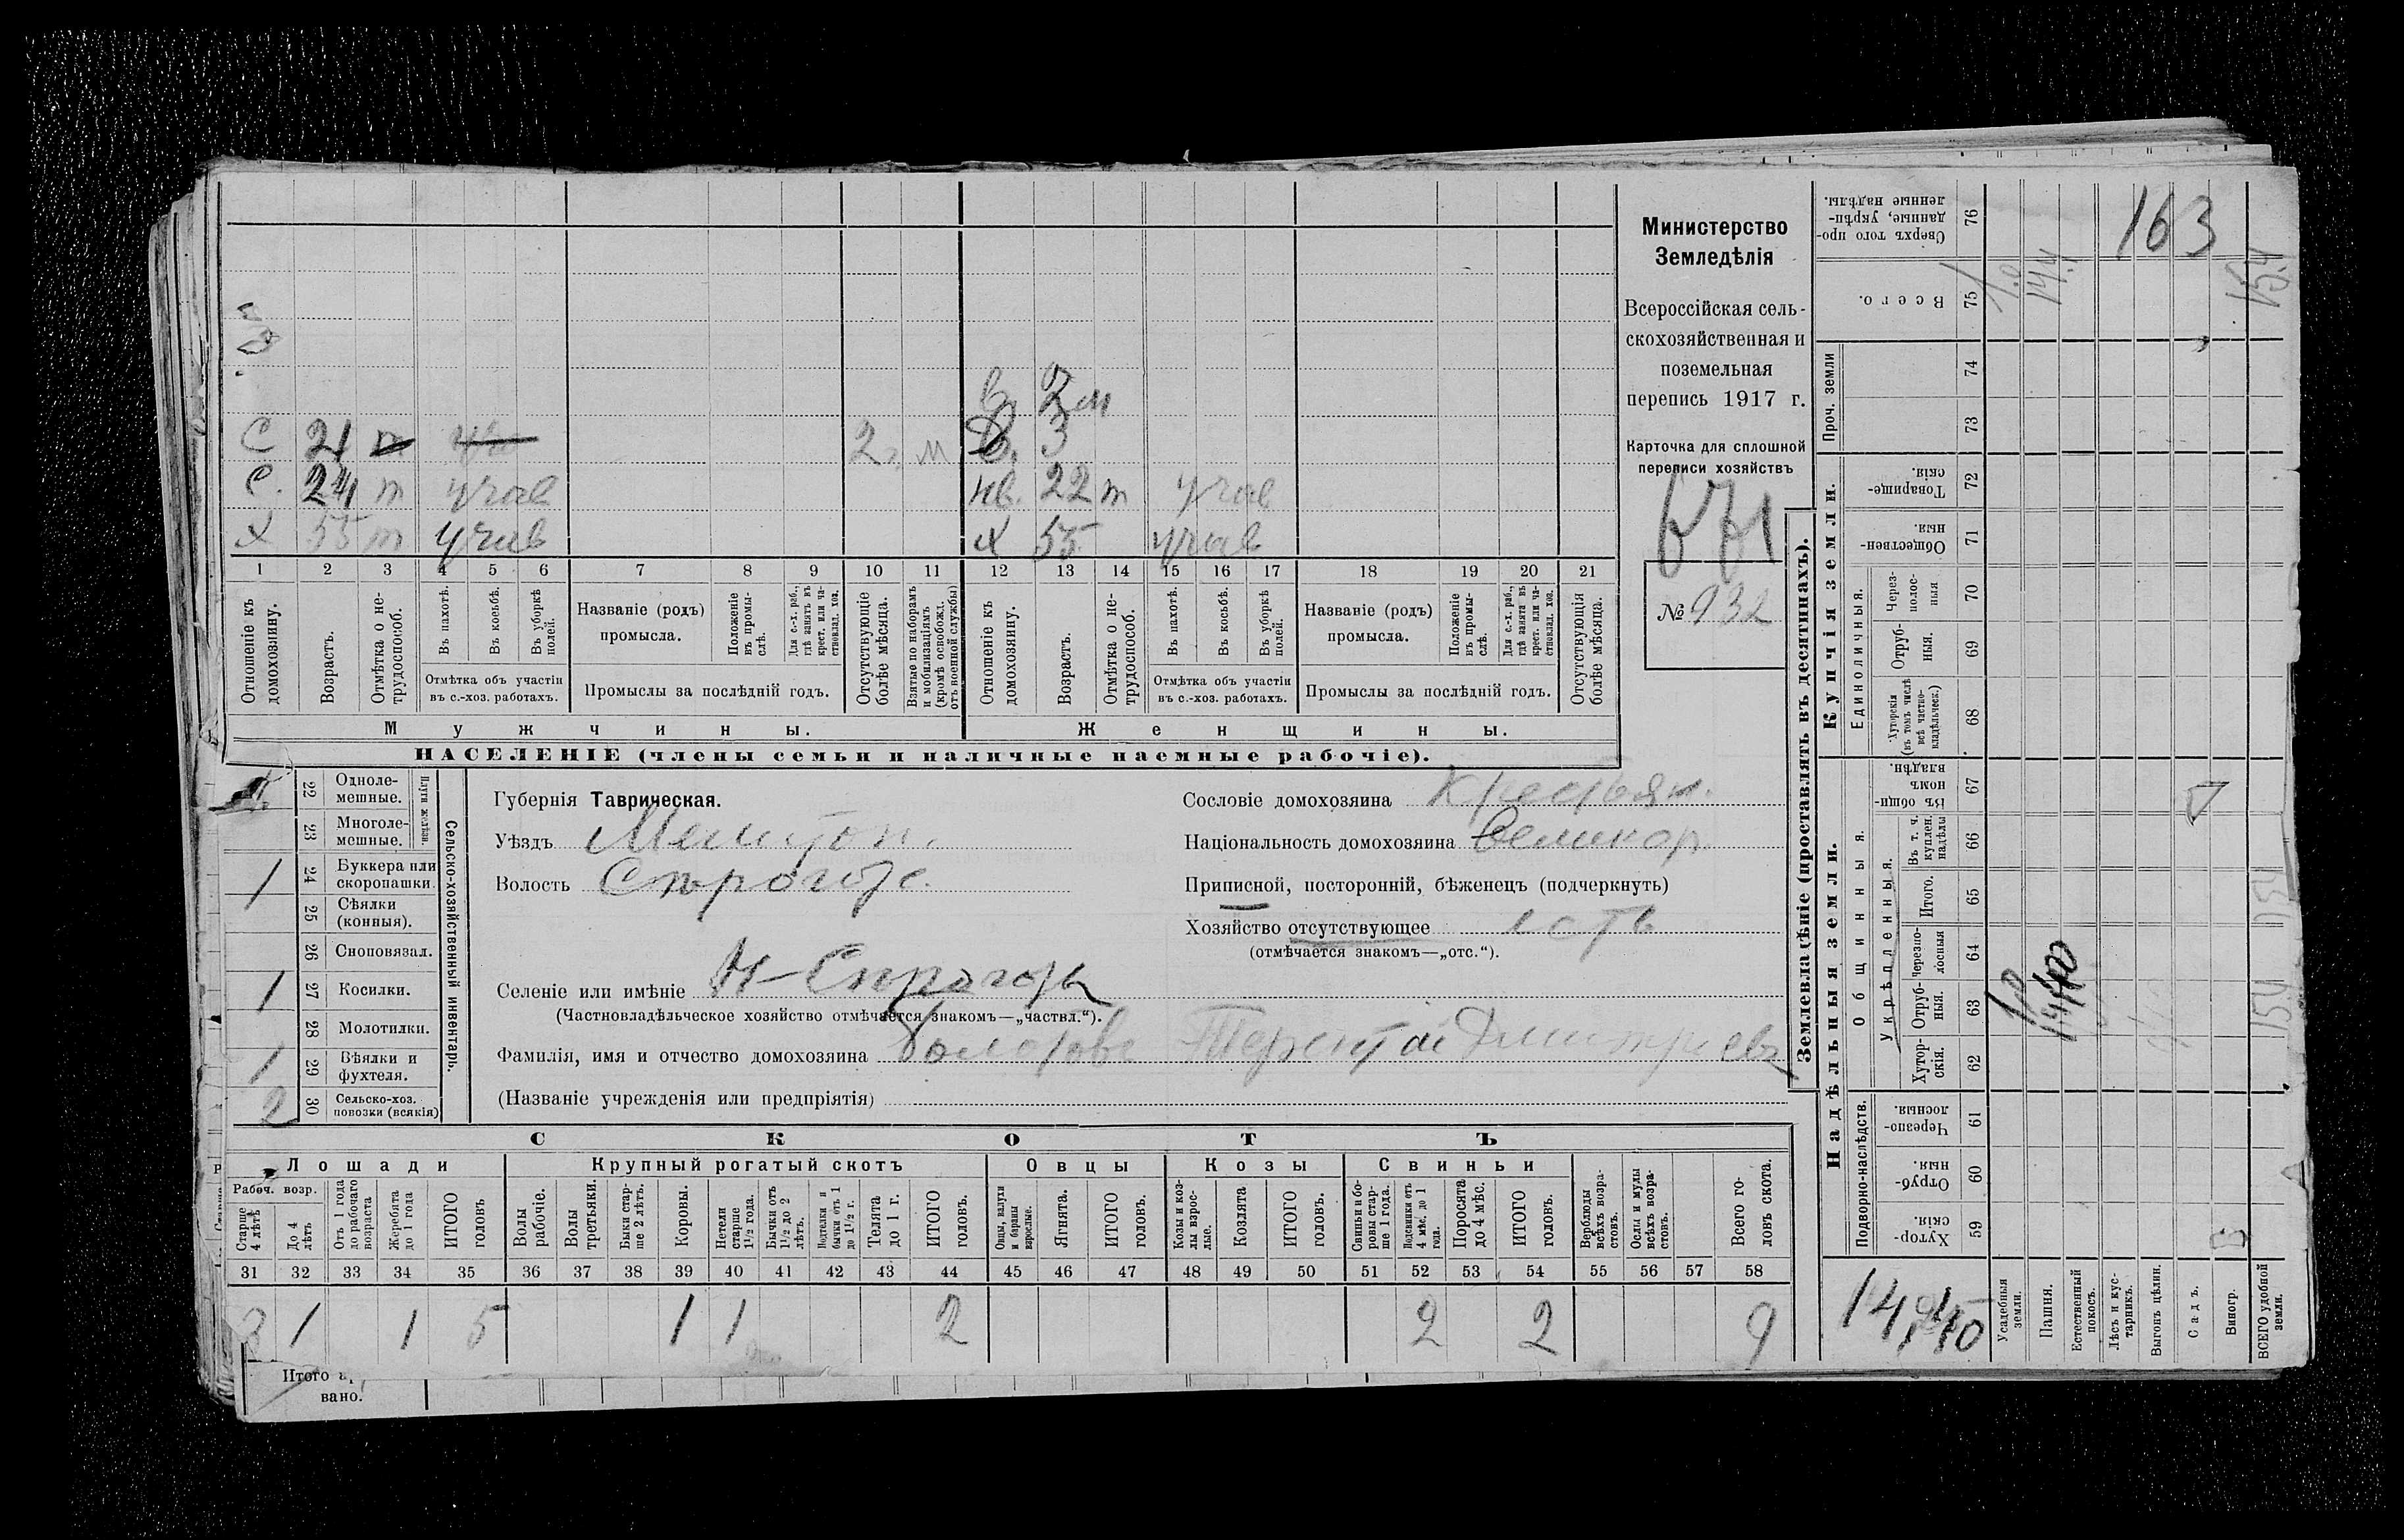 Министерство
Земледѣлія
Всероссійская сель-
скохозяйственная и
поземельная
перепись 1917 г.
Карточка для сплошной
переписи хозяйствъ
671
№ 932
в. 2 м
С 21 т 2 г. м В. 3
С. 24 т учав нв. 22 т учав
Х 55 т учав х 55 учав
1 2 3 4 5 6 7 8 9 10 11 12 13 14 15 16 17 18 19 20 21
Отношеніе къ домохозяину.
Возрастъ.
Отмѣтка о не-трудоспособ.
Въ пахотѣ.
Въ косьбѣ.
Въ уборкѣ полей.
Отмѣтка объ участіи
въ с.-хоз. работахъ.
Названіе (родъ)
промысла.
Положеніе въ промы-слѣ.
Для с.-х. раб., гдѣ занятъ въ крест. или ча-стновлад. хоз.
Промыслы за послѣдній годъ.
Отсутствующіе болѣе мѣсяца.
Взятые по наборамъ и мобилизаціямъ (кромѣ освобожд. отъ военной службы)
Отношеніе къ домохозяину.
Возрастъ.
Отмѣтка о не-трудоспособ.
Въ пахотѣ.
Въ косьбѣ.
Въ уборкѣ полей.
Отмѣтка объ участіи
въ с.-хоз. работахъ.
Названіе (родъ)
промысла.
Положеніе въ промы-слѣ.
Для с.-х. раб., гдѣ занята въ крест. или ча-стновлад. хоз.
Промыслы за послѣдній годъ.
Отсутствующія болѣе мѣсяца.
Мужчины. Женщины.
НАСЕЛЕНІЕ (члены семьи и наличные наемные рабочіе).
Сельско-хозяйственный инвентарь.
Плуги желѣзн.
22 Одноле-мешные.
23 Многоле-мешные.
1 24 Буккера или скоропашки.
25 Сѣялки (конныя).
26 Сноповязал.
1 27 Косилки.
28 Молотилки.
1 29 Вѣялки и фухтеля.
2 30 Сельско-хоз. повозки (всякія)
Губернія Таврическая.
Уѣздъ Мелитоп.
Волость Сѣрогоз.
Селеніе или имѣніе Н-Сѣрогозы
(Частновладѣльческое хозяйство отмѣчается знакомъ—„частвл.“).
Фамилія, имя и отчество домохозяина Болотовъ Терентій Дмитріевъ
(Названіе учрежденія или предпріятія)
Сословіе домохозяина Крестьян.
Національность домохозяина Великор.
Приписной, посторонній, бѣженецъ (подчеркнуть)
Хозяйство отсутствующее есть
(отмѣчается знакомъ—„отс.“).
СКОТЪ
Лошади Крупный рогатый скотъ Овцы Козы Свиньи
Рабоч. возр.
Старше 4 лѣтъ
До 4 лѣтъ
Отъ 1 года до рабочаго возраста
Жеребята до 1 года
ИТОГО головъ
Волы рабочіе.
Волы третьяки.
Быки стар-ше 2 лѣтъ.
Коровы.
Нетели старше 1 1/2 года.
Бычки отъ 1 1/2 до 2 лѣтъ.
Подтелки и бычки отъ 1 до 1 1/2 г.
Телята до 1 г.
ИТОГО головъ.
Овцы, валухи и бараны взрослые.
Ягнята.
ИТОГО головъ.
Козы и коз-лы взрос-лые.
Козлята
ИТОГО головъ.
Свиньи и бо-ровы стар-ше 1 года.
Подсвинки отъ 4 мѣс. до 1 года.
Поросята до 4 мѣс.
ИТОГО головъ.
Верблюды всѣхъ возра-стовъ.
Ослы и мулы всѣхъ возра-стовъ.
Всего го-ловъ скота.
31 32 33 34 35 36 37 38 39 40 41 42 43 44 45 46 47 48 49 50 51 52 53 54 55 56 57 58
3 1 1 5 1 1 2 2 2 9
Итого
вано.
Землевладѣніе (проставлять въ десятинахъ).
Сверхъ того про-данные, укрѣп-ленные надѣлы. 76 163
Всего. 75 1,0 14,4 15,4
Проч. земли
74
73
Купчія земли.
Товарище-скія. 72
Обществен-ныя 71
Единоличныя.
Через-полос-ныя 70
Отруб-ныя. 69
Хуторскія (въ томъ числѣ всѣ частно-владѣльческ.) 68
Надѣльныя земли.
Общинныя.
Въ общин-номъ владѣн. 67
Укрѣпленныя.
Въ т. ч. куплен. надѣлы 66
Итого. 65
Черезпо-лосныя 64
Отруб-ныя. 63
Хутор-скія. 62
Подворно-наслѣдств.
Черезпо-лосныя. 61
Отруб-ныя. 60
Хутор-скія. 59
Усадебныя земли.
Пашня.
Естественный покосъ.
Лѣсъ и кус-тарникъ.
Выгонъ цѣлин.
Садъ.
Виногр.
ВСЕГО удобной земли.